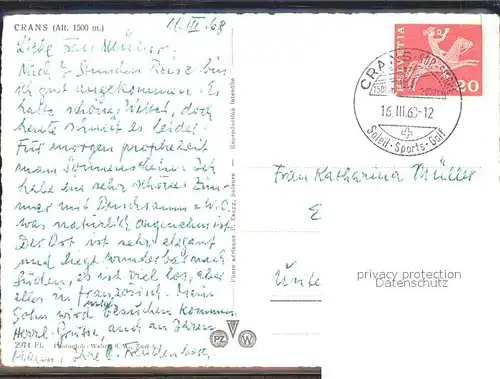 CRANS (Alt. 1500 m.)
11. III. 68
Liebe Frau Müller.
Nach 7 Stunden Reise bin
ich gut angekommen. Es
hatte schönes Wetter, doch
heute schneit es leider!
Für morgen prophezeit
man Sonnenschein. Ich
habe ein sehr schönes Zim
mer mit Duschraum + W.C.
was natürlich angenehm ist.
Der Ort ist sehr elegant
und liegt wunderbar nach
Süden, es ist viel los, aber
alles in französisch. Mein
Sohn wird mich besuchen kommen.
Herzl. Grüsse, auch an Ihren
Mann, Ihre
2974 Fl.
Reproduction interdite
HELVETIA
20
CRANS
16.III.68-12
Soleil·Sports·Golf
Frau Katharina Müller
E
Unte
PZ W
privacy protection
Datenschutz